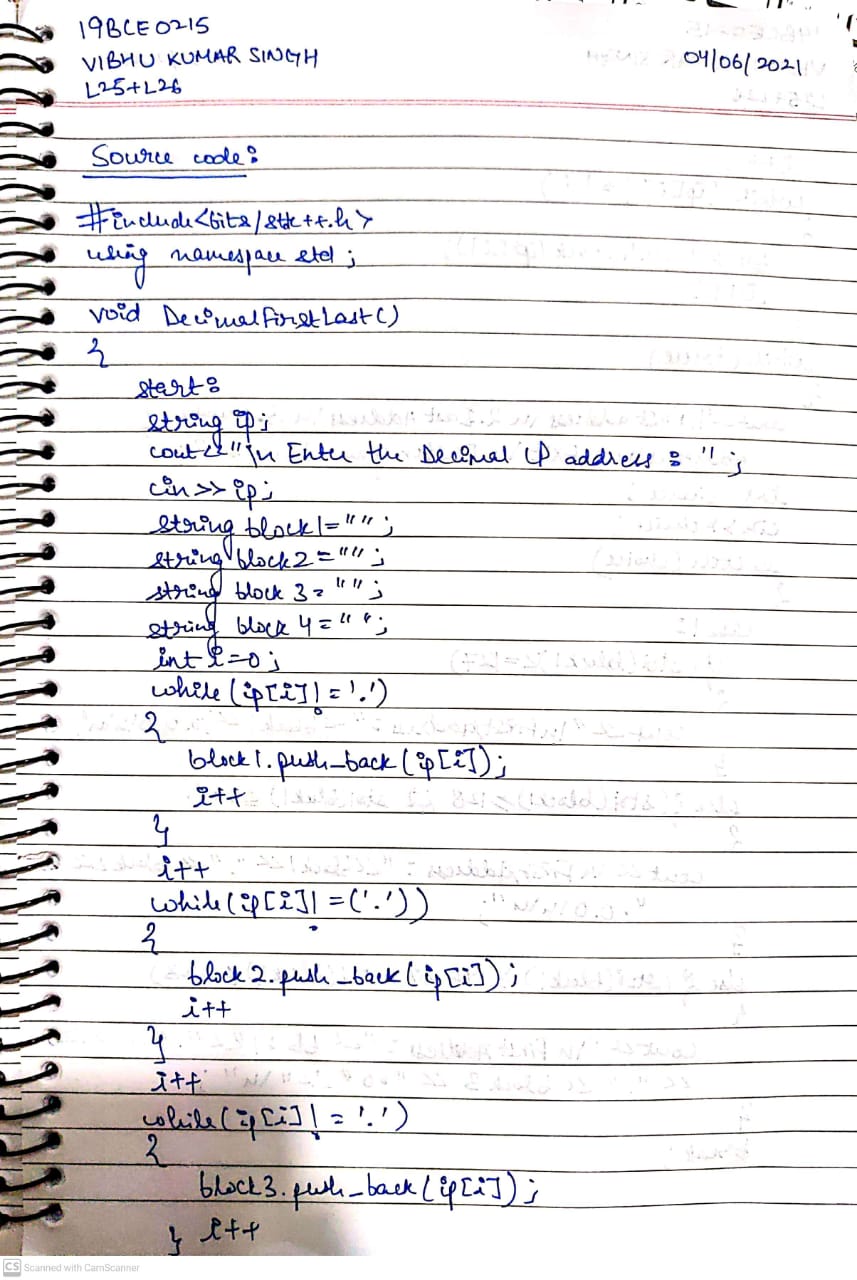 19BCE0215
VIBHU KUMAR SINGH
04/06/2021
L25+L26
Source code:
#include<bits/stdc++.h>
using namespace std;
void DecimalFirstLast()
{
start:
string ip;
cout<<"\n Enter the Decimal IP address : ";
cin>>ip;
string block1="";
string block2="";
string block 3="";
string block 4="";
int i=0;
while(ip[i]!='.')
{
block1.push_back(ip[i]);
i++
}
i++
while(ip[i]!=('.'))
{
block2.push_back(ip[i]);
i++
}
i++
while(ip[i]!='.')
{
block3.push_back(ip[i]);
} i++
CS Scanned with CamScanner